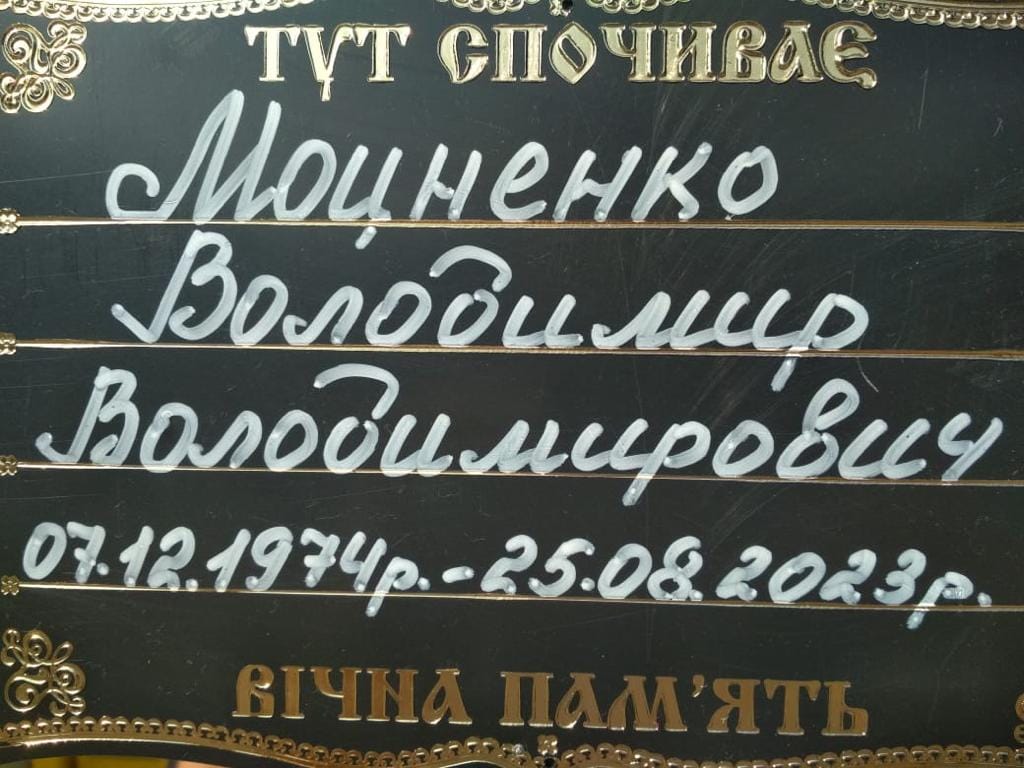 ТУТ СПОЧИВАЄ
Моцненко
Володимир
Володимирович
07.12.1974р.-25.08.2023р.
ВІЧНА ПАМ'ЯТЬ